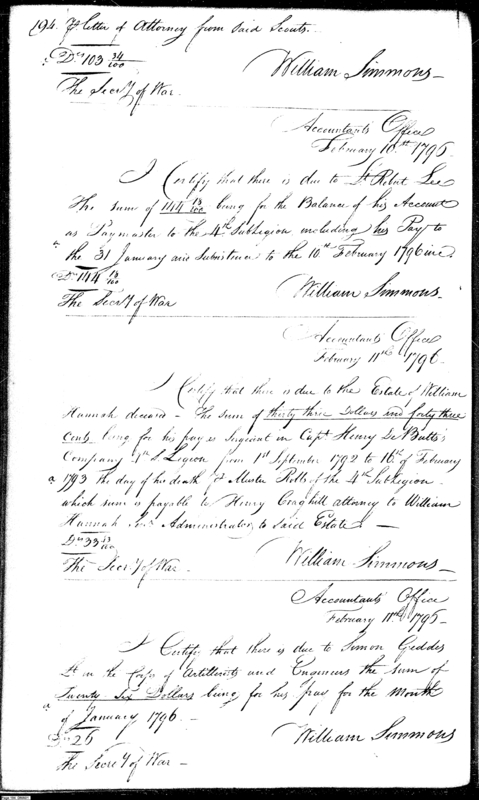 194. P letter of Attorney from said Scouts.
Drs 103 34/100
William Simmons
The Secry of War
Accountants Office
February 10th 1796
I Certify that there is due to Lt Robert Lee
The sum of 144 13/100 being for the Balance of his Account
as Paymaster to the 4th SubLegion including his Pay to
the 31 January and Subsistence to the 10th February 1796 ine.
Drs 144 13/100
William Simmons
The Secry of War
Accountants Office
February 11th 1796
I Certify that there is due to the Estate of William
Hannah deceased - The sum of thirty three Dollars and forty three
cents being for his pay as Sergeant in Capt Henry De Butts's
Company 4th S Legion from 1st September 1792 to 16th of February
1793 The day of his death P Muster Rolls of the 4th SubLegion
which sum is payable to Henry Craghill attorney to William
Hannah Administrator to said Estate
Drs 33
William Simmons
The Secry of War
Accountants Office
February 11th 1796
I Certify that there is due to Simon Geddes
Lt in the Corps of Artillerists and Engineers the sum of
Twenty Six Dollars being for his pay for the Month
of January 1796
Drs 26
William Simmons
The Secrey of War